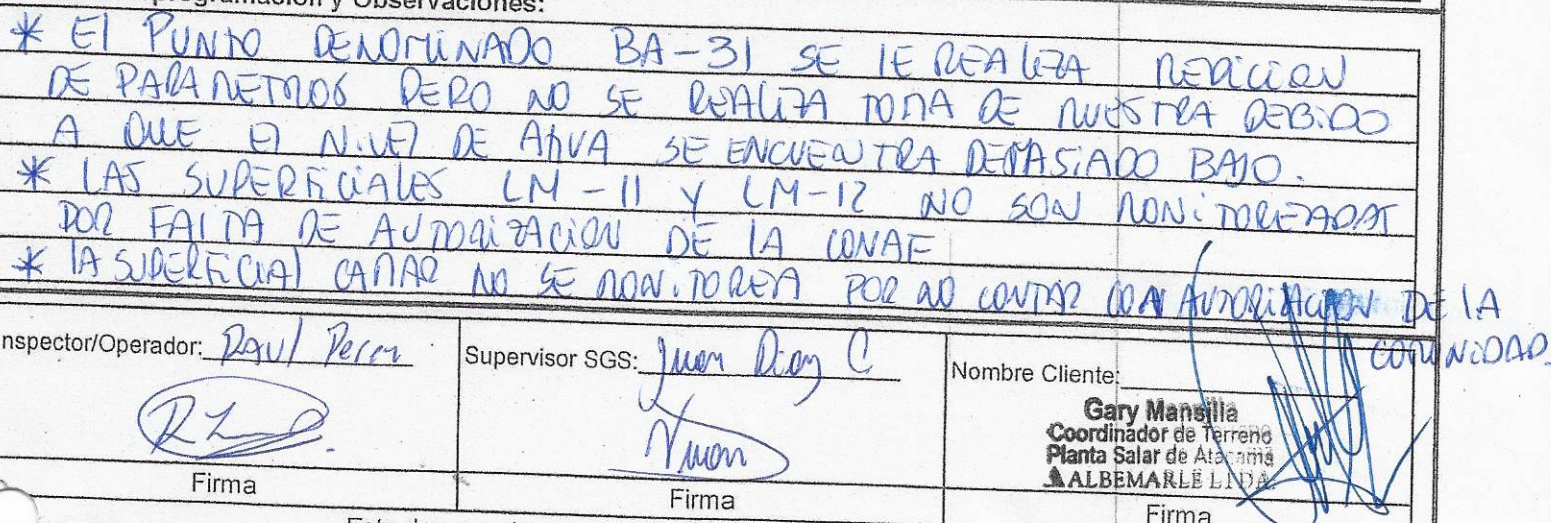 programación y Observaciones:
* El PUNTO DENOMINADO BA-31 SE lE REALIZA MEDICION
DE PARAMETROS PERO NO SE REALIZA TOMA DE MUESTRA DEBIDO
A QUE El NIVEl DE AGUA SE ENCUENTRA DEMASIADO BAJO.
* LAS SUPERFICIALES LM-11 Y LM-12 NO SON MONITOREADAS
POR FAlTA DE AUTORIZACION DE lA CONAF
* lA SUPERFICIAl CAMAR NO SE MONITOREA POR NO CONTAR CON AUTORIZACION DE lA
COMUNIDAD.
nspector/Operador: Raul Perez
Supervisor SGS: Juan Diaz C
Nombre Cliente:
Gary Mansilla
Coordinador de Terreno
Planta Salar de Atacama
ALBEMARLE LTDA.
Firma
Firma
Firma